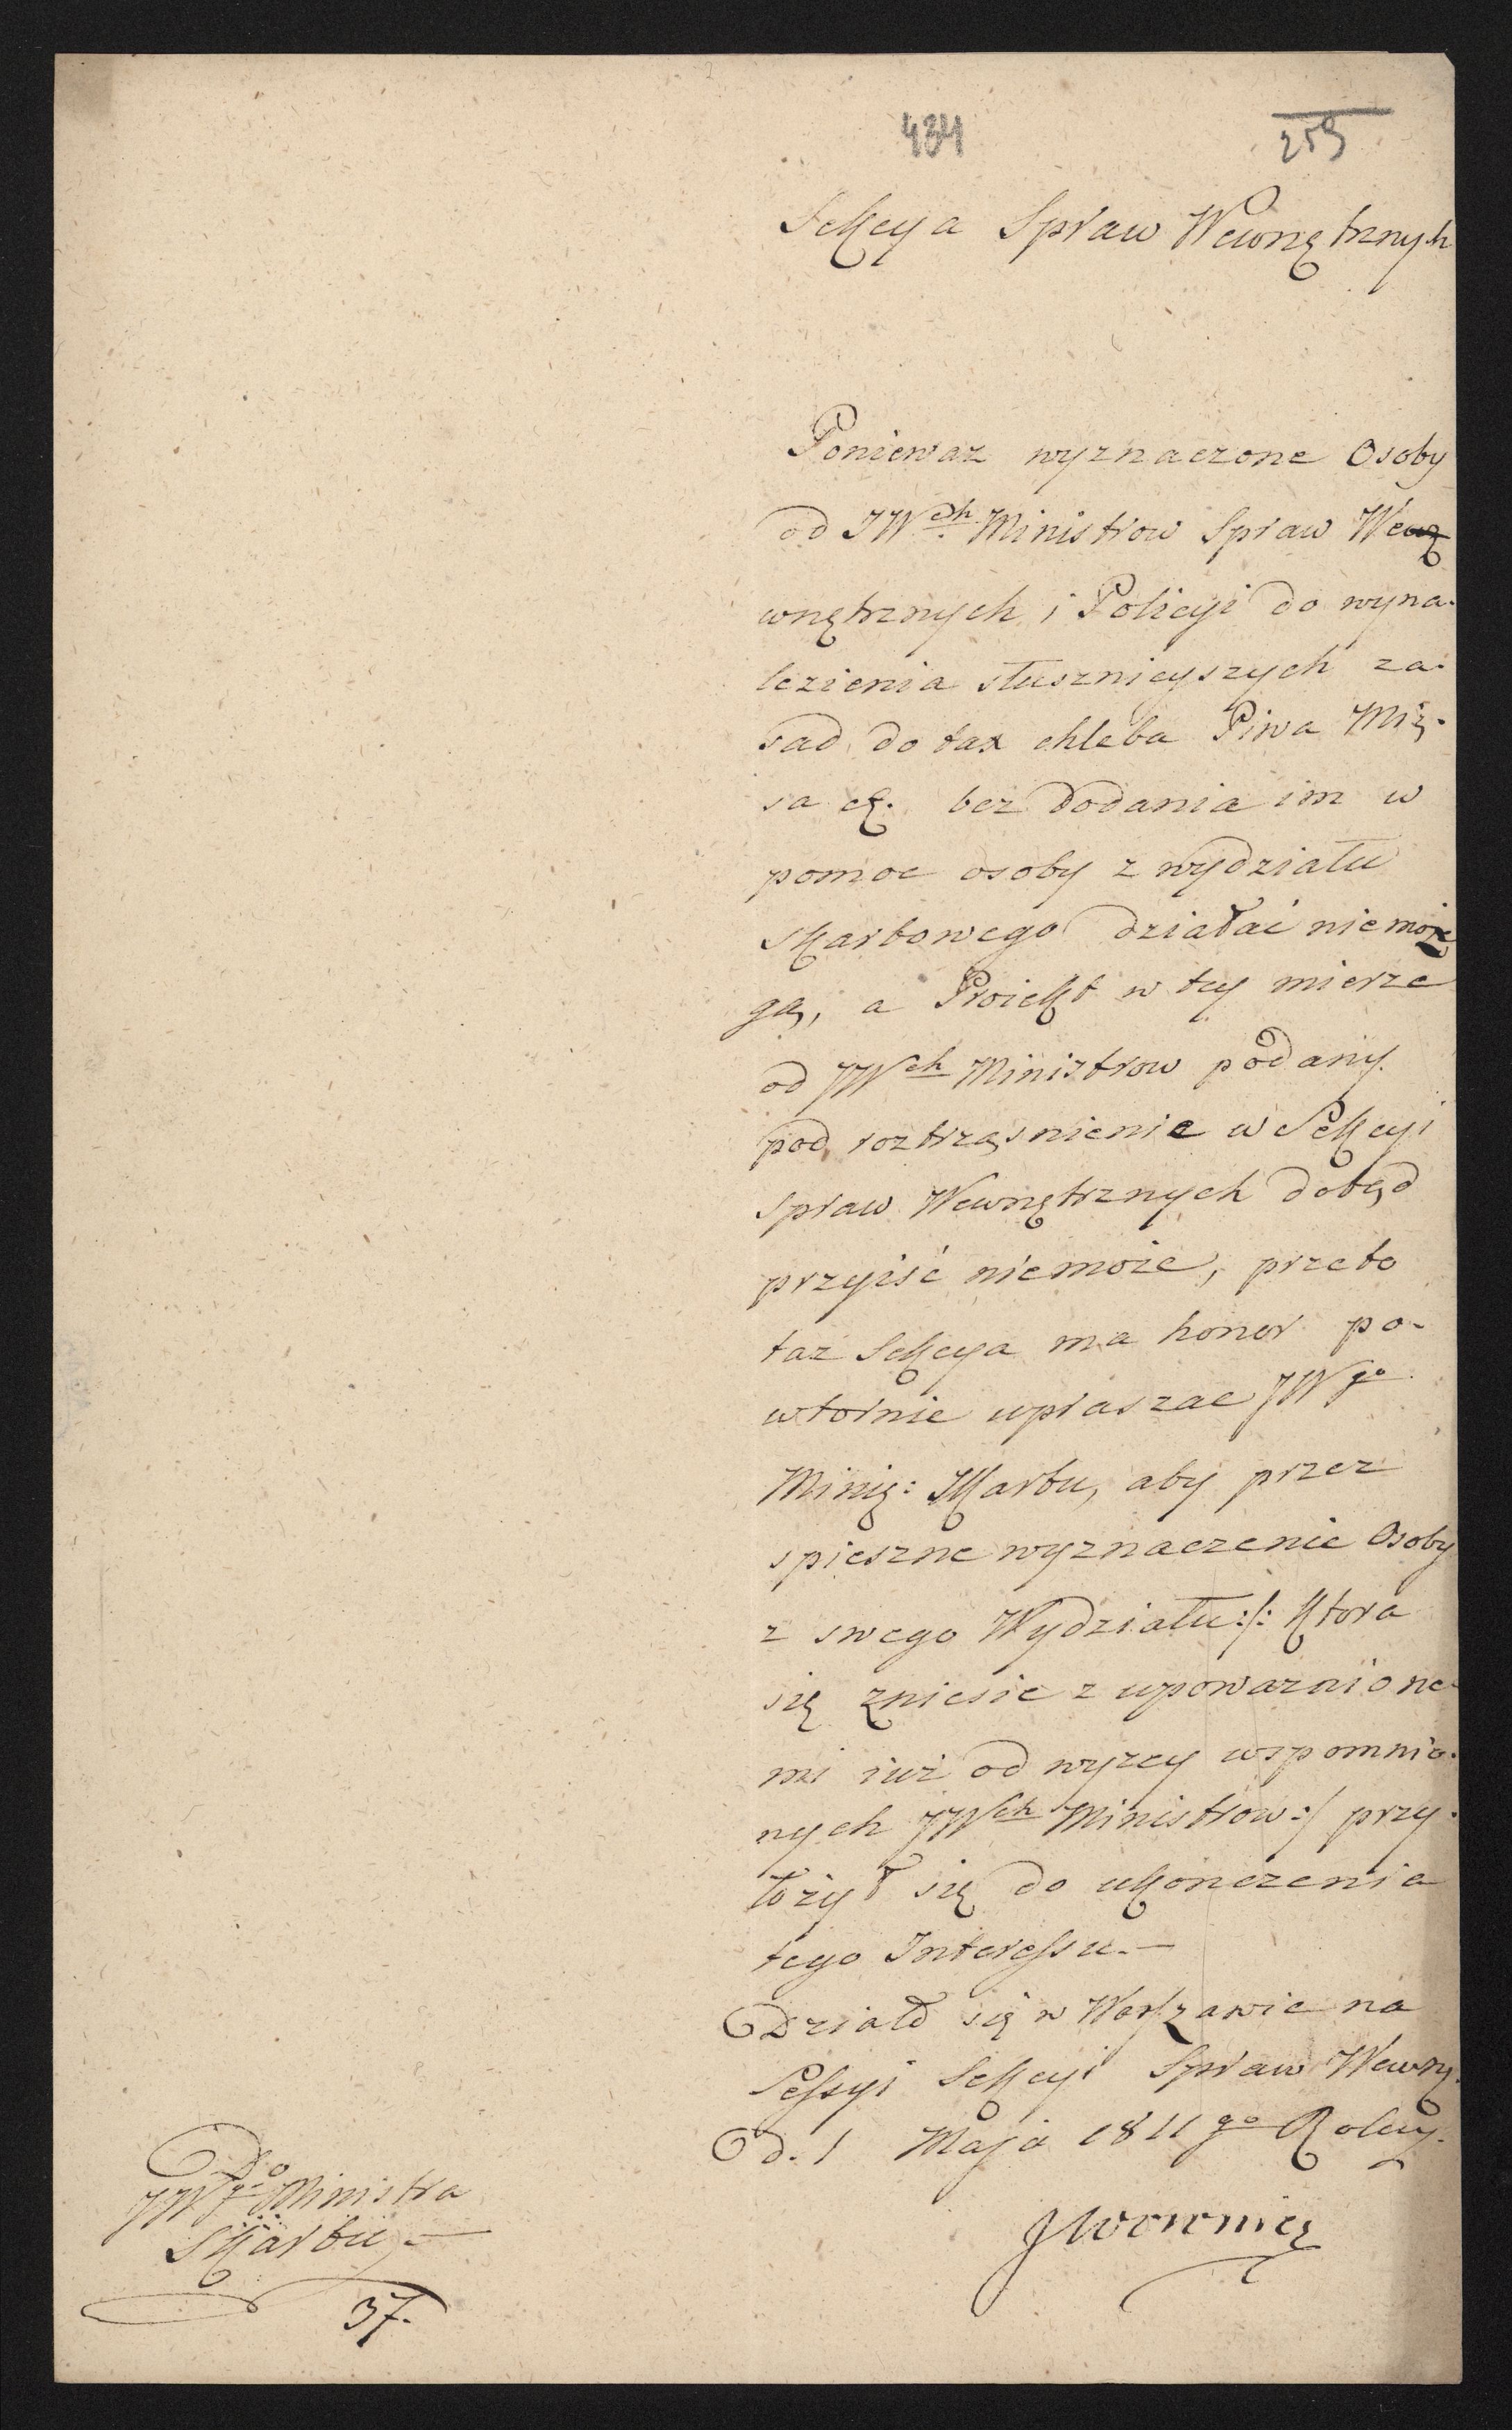 434
259
Sekcya Spraw Wewnętrznych
Poniewaz wyznaczone Osoby
od JWch Ministrow Spraw We
wnętrznych i Policyi do wyna-
lezienia słusznieyszych za-
sad do tax chleba Piwa Mię-
sa etc. bez dodania im w
pomoc osoby z wydziału
skarbowego działać niemo
gą, a Proiekt w tey mierze
od JWch Ministrow podany
pod roztrząsnienie w Sekcyi
spraw Wewnętrznych dotąd
przyiść niemoże, przeto
taż Sekcya ma honor po-
wtornie upraszac JWgo
Minis: Skarbu, aby przez
spieszne wyznaczenie Osoby
z swego Wydziału :/: ktora
się zniesie z upowaznione-
mi iuż od wyzey wspomnio-
nych JWch Ministrow :/ przy-
łożył się do ukonczenia
tego Interessu. —
Działo się w Warszawie na
Sessyi Sekcyi Spraw Wewn.
D. 1 Maja 1811 go Roku.
JWoronicz
Do
JWgo Ministra
Skarbu —
37.